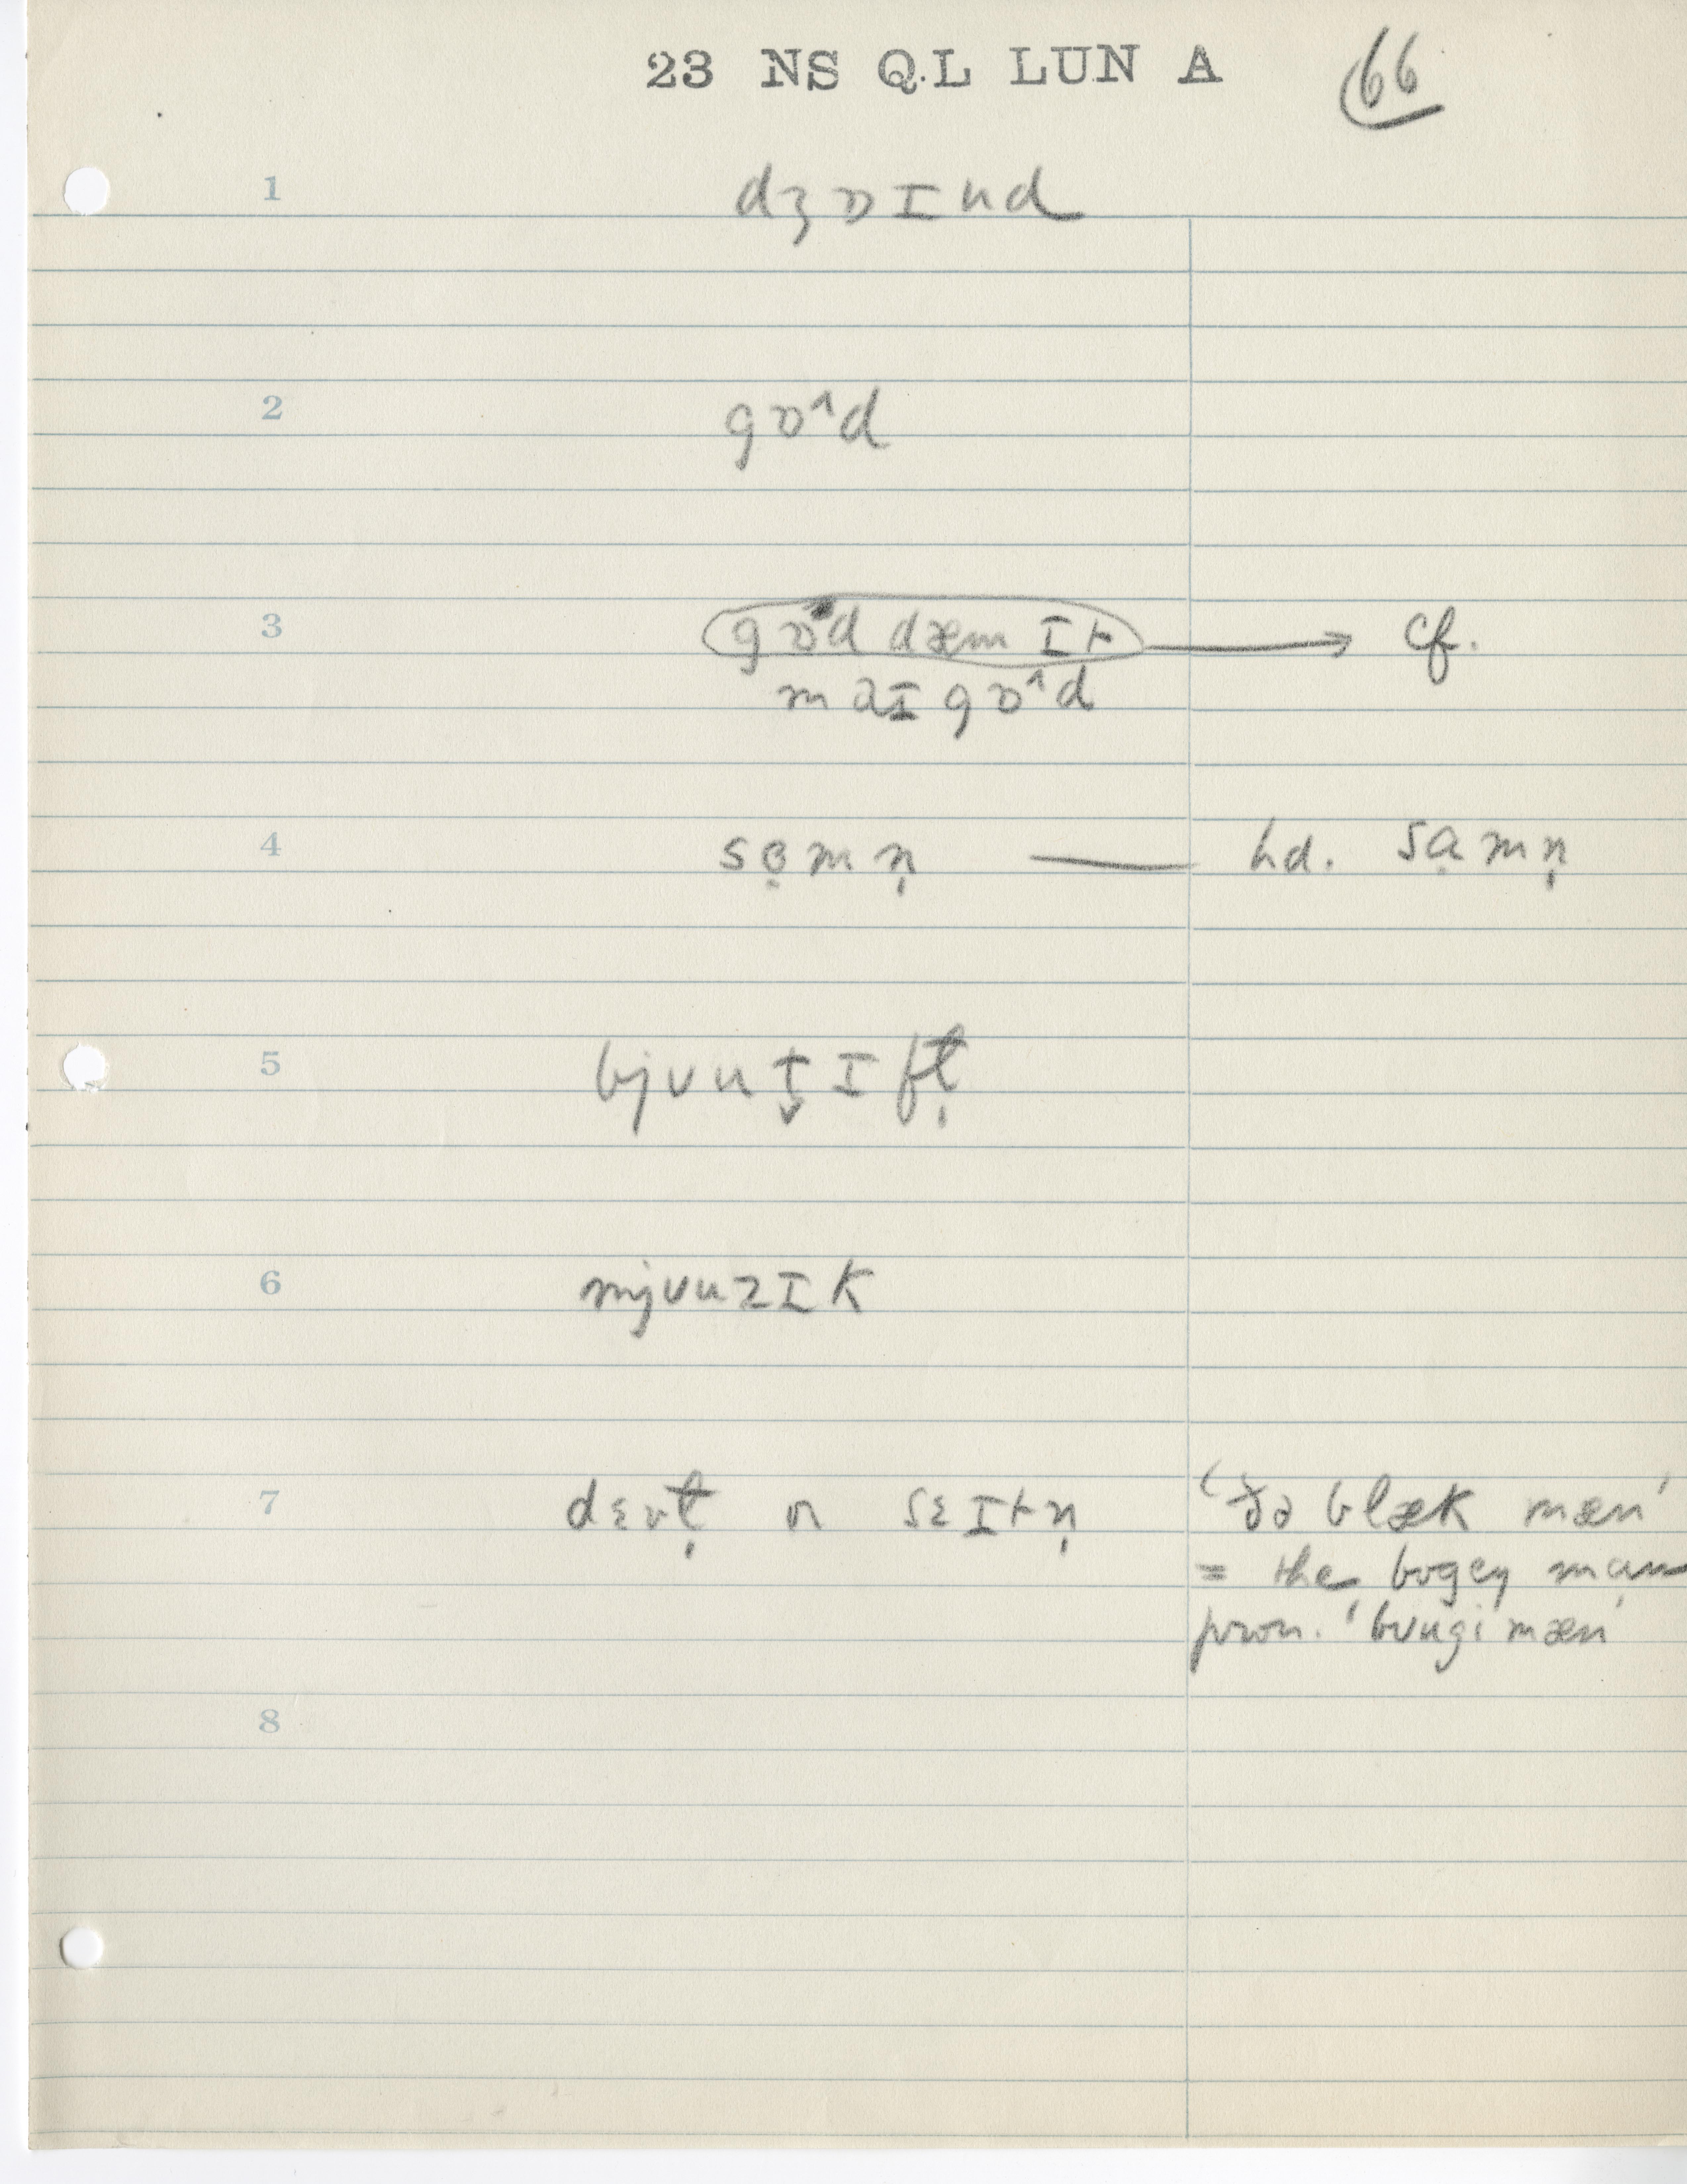 23 NS Q.L LUN A 66
1 dʒɒɪnd
2 gɒ^d
3 gɒ^d dæm ɪt → cf.
maɪ gɒ^d
4 sɐ̣mn̩ — hd. sɑ̣mn̩
5 bjʊut̬ɪfɫ̩
6 mjʊuzɪk
7 dɛvɫ̩ or sɛɪtn̩ 'ðə blæk mæn'
= the bogey man
pron. 'bʊugi mæn'
8